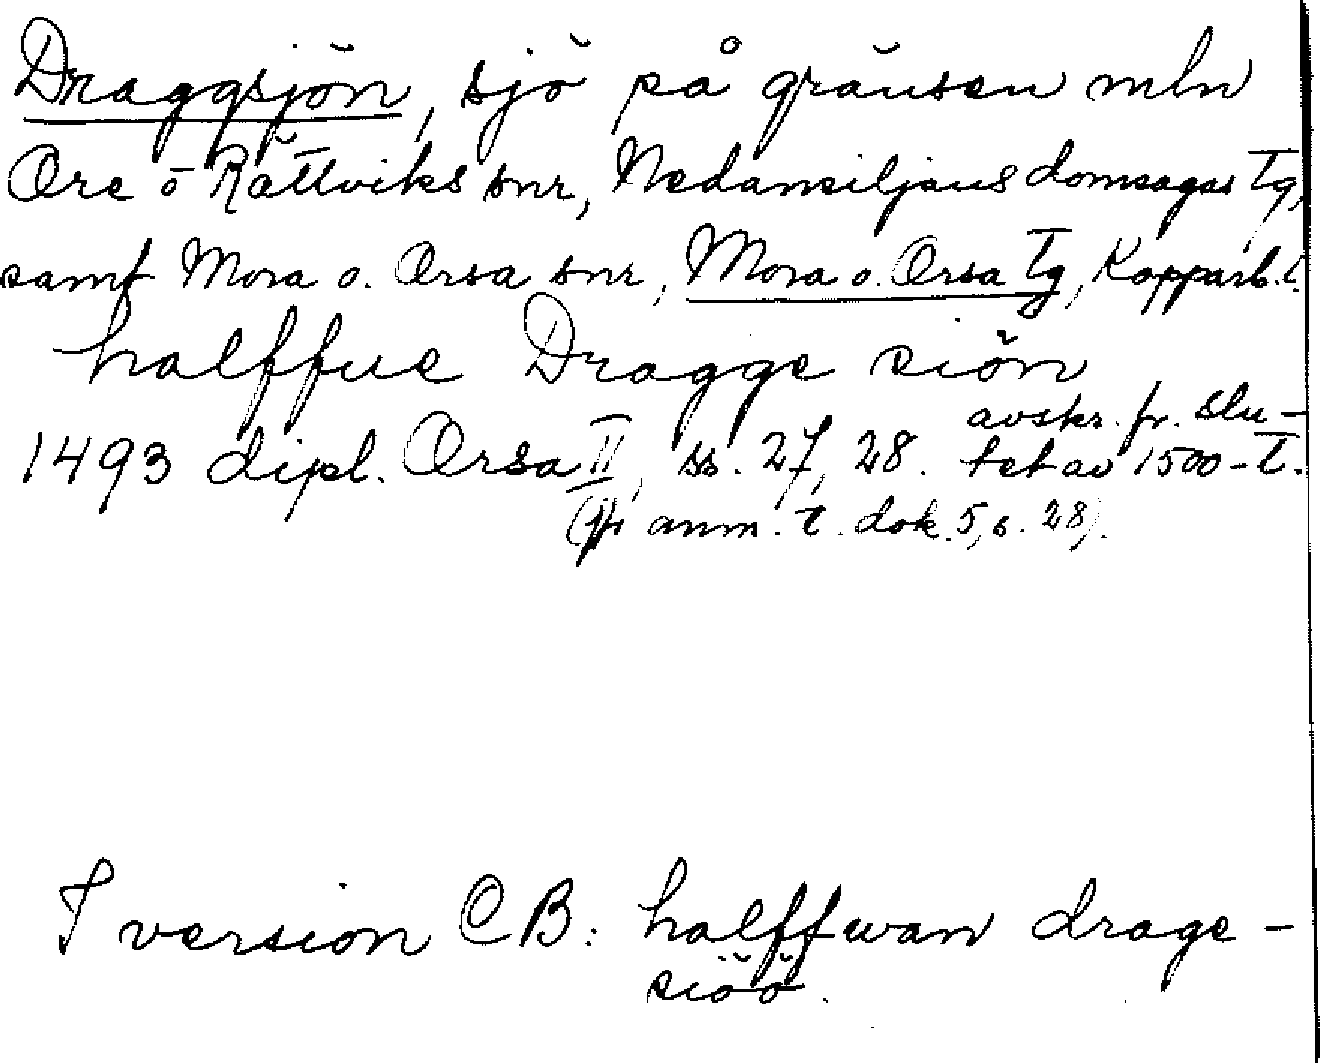 Draggsjön, sjö på gränsen mln
Ore o Rättviks snr, Nedansiljans domsagas Tg,
samt Mora o. Orsa snr, Mora o. Orsa Tg, Kopparb. l.
halffue Dragge siön
1493 dipl. Orsa II, ss. 27, 28. avskr. fr. slu-
tet av 1500-t.
(jfr anm. t. dok. 5, s. 28).
I version CB: halffwan drage-
siöö.